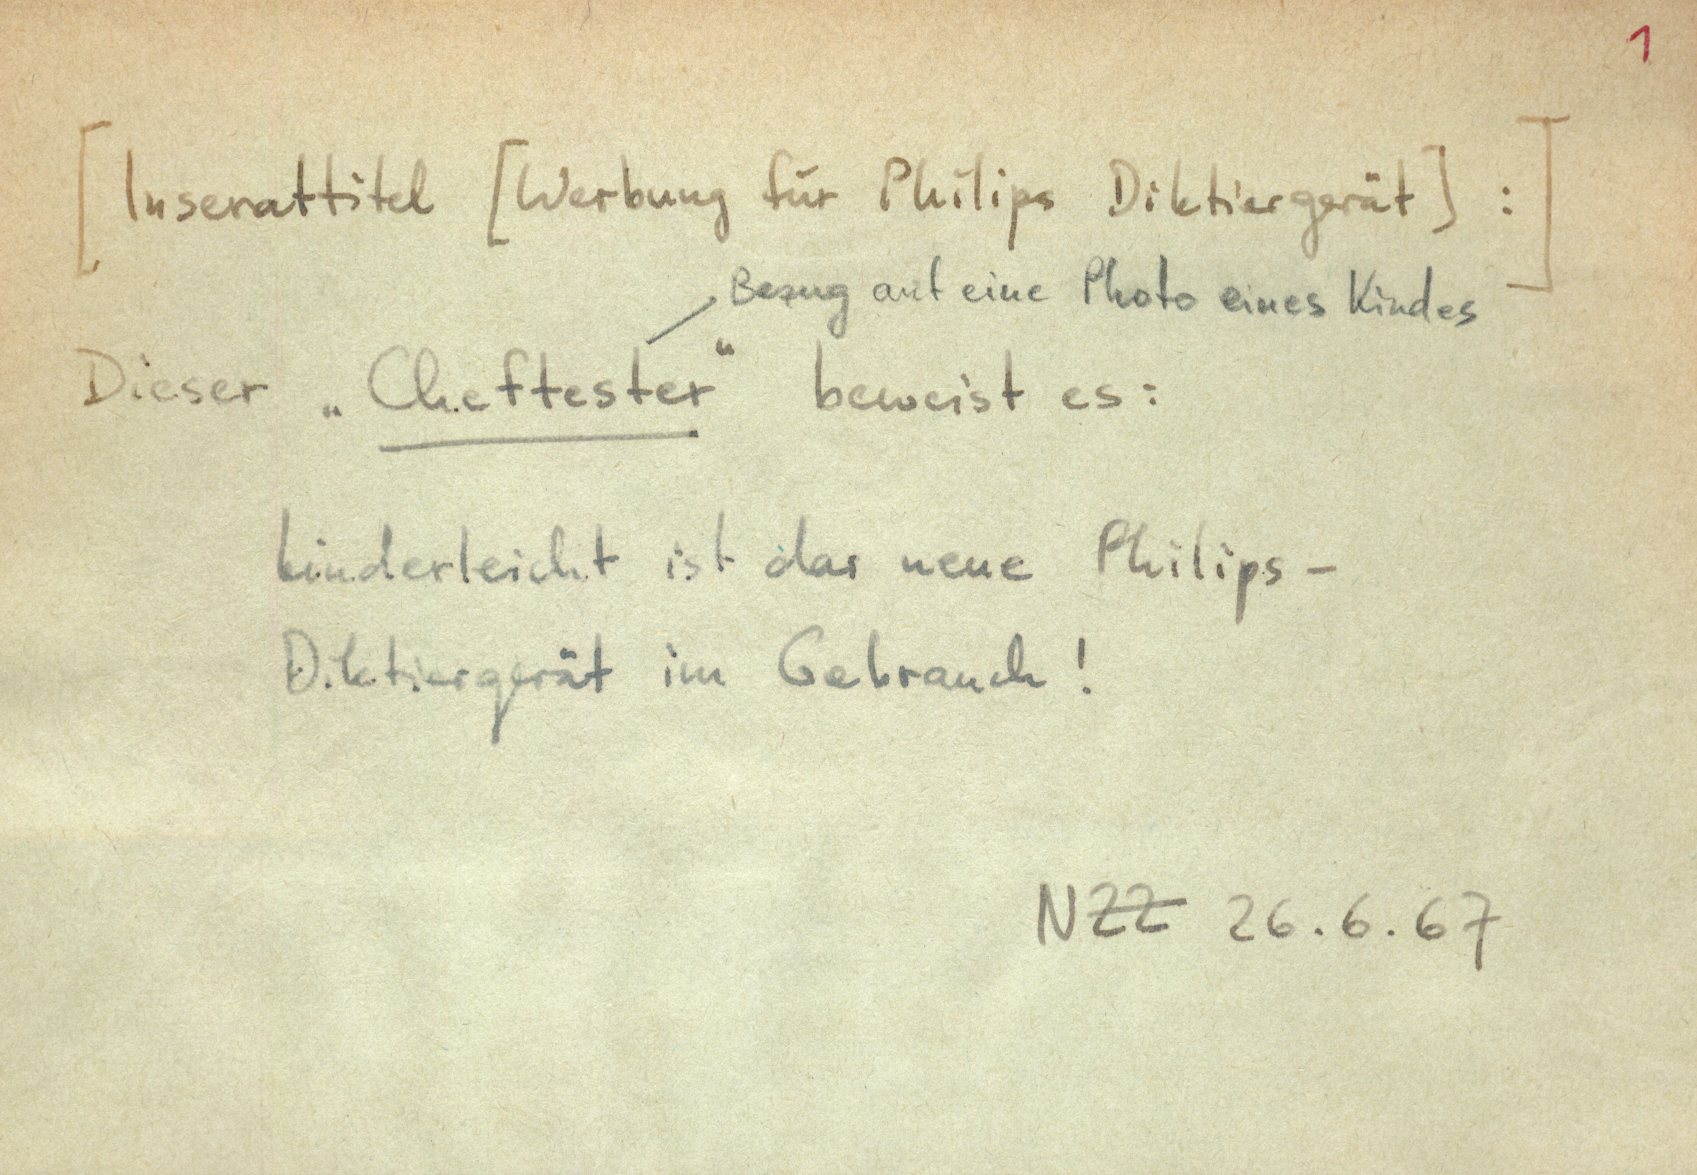 1
[Inserattitel [Werbung für Philips Diktiergerät] :]
Bezug auf eine Photo eines Kindes
Dieser „Cheftester“ beweist es:
kinderleicht ist das neue Philips-
Diktiergerät im Gebrauch!
NZZ 26.6.67